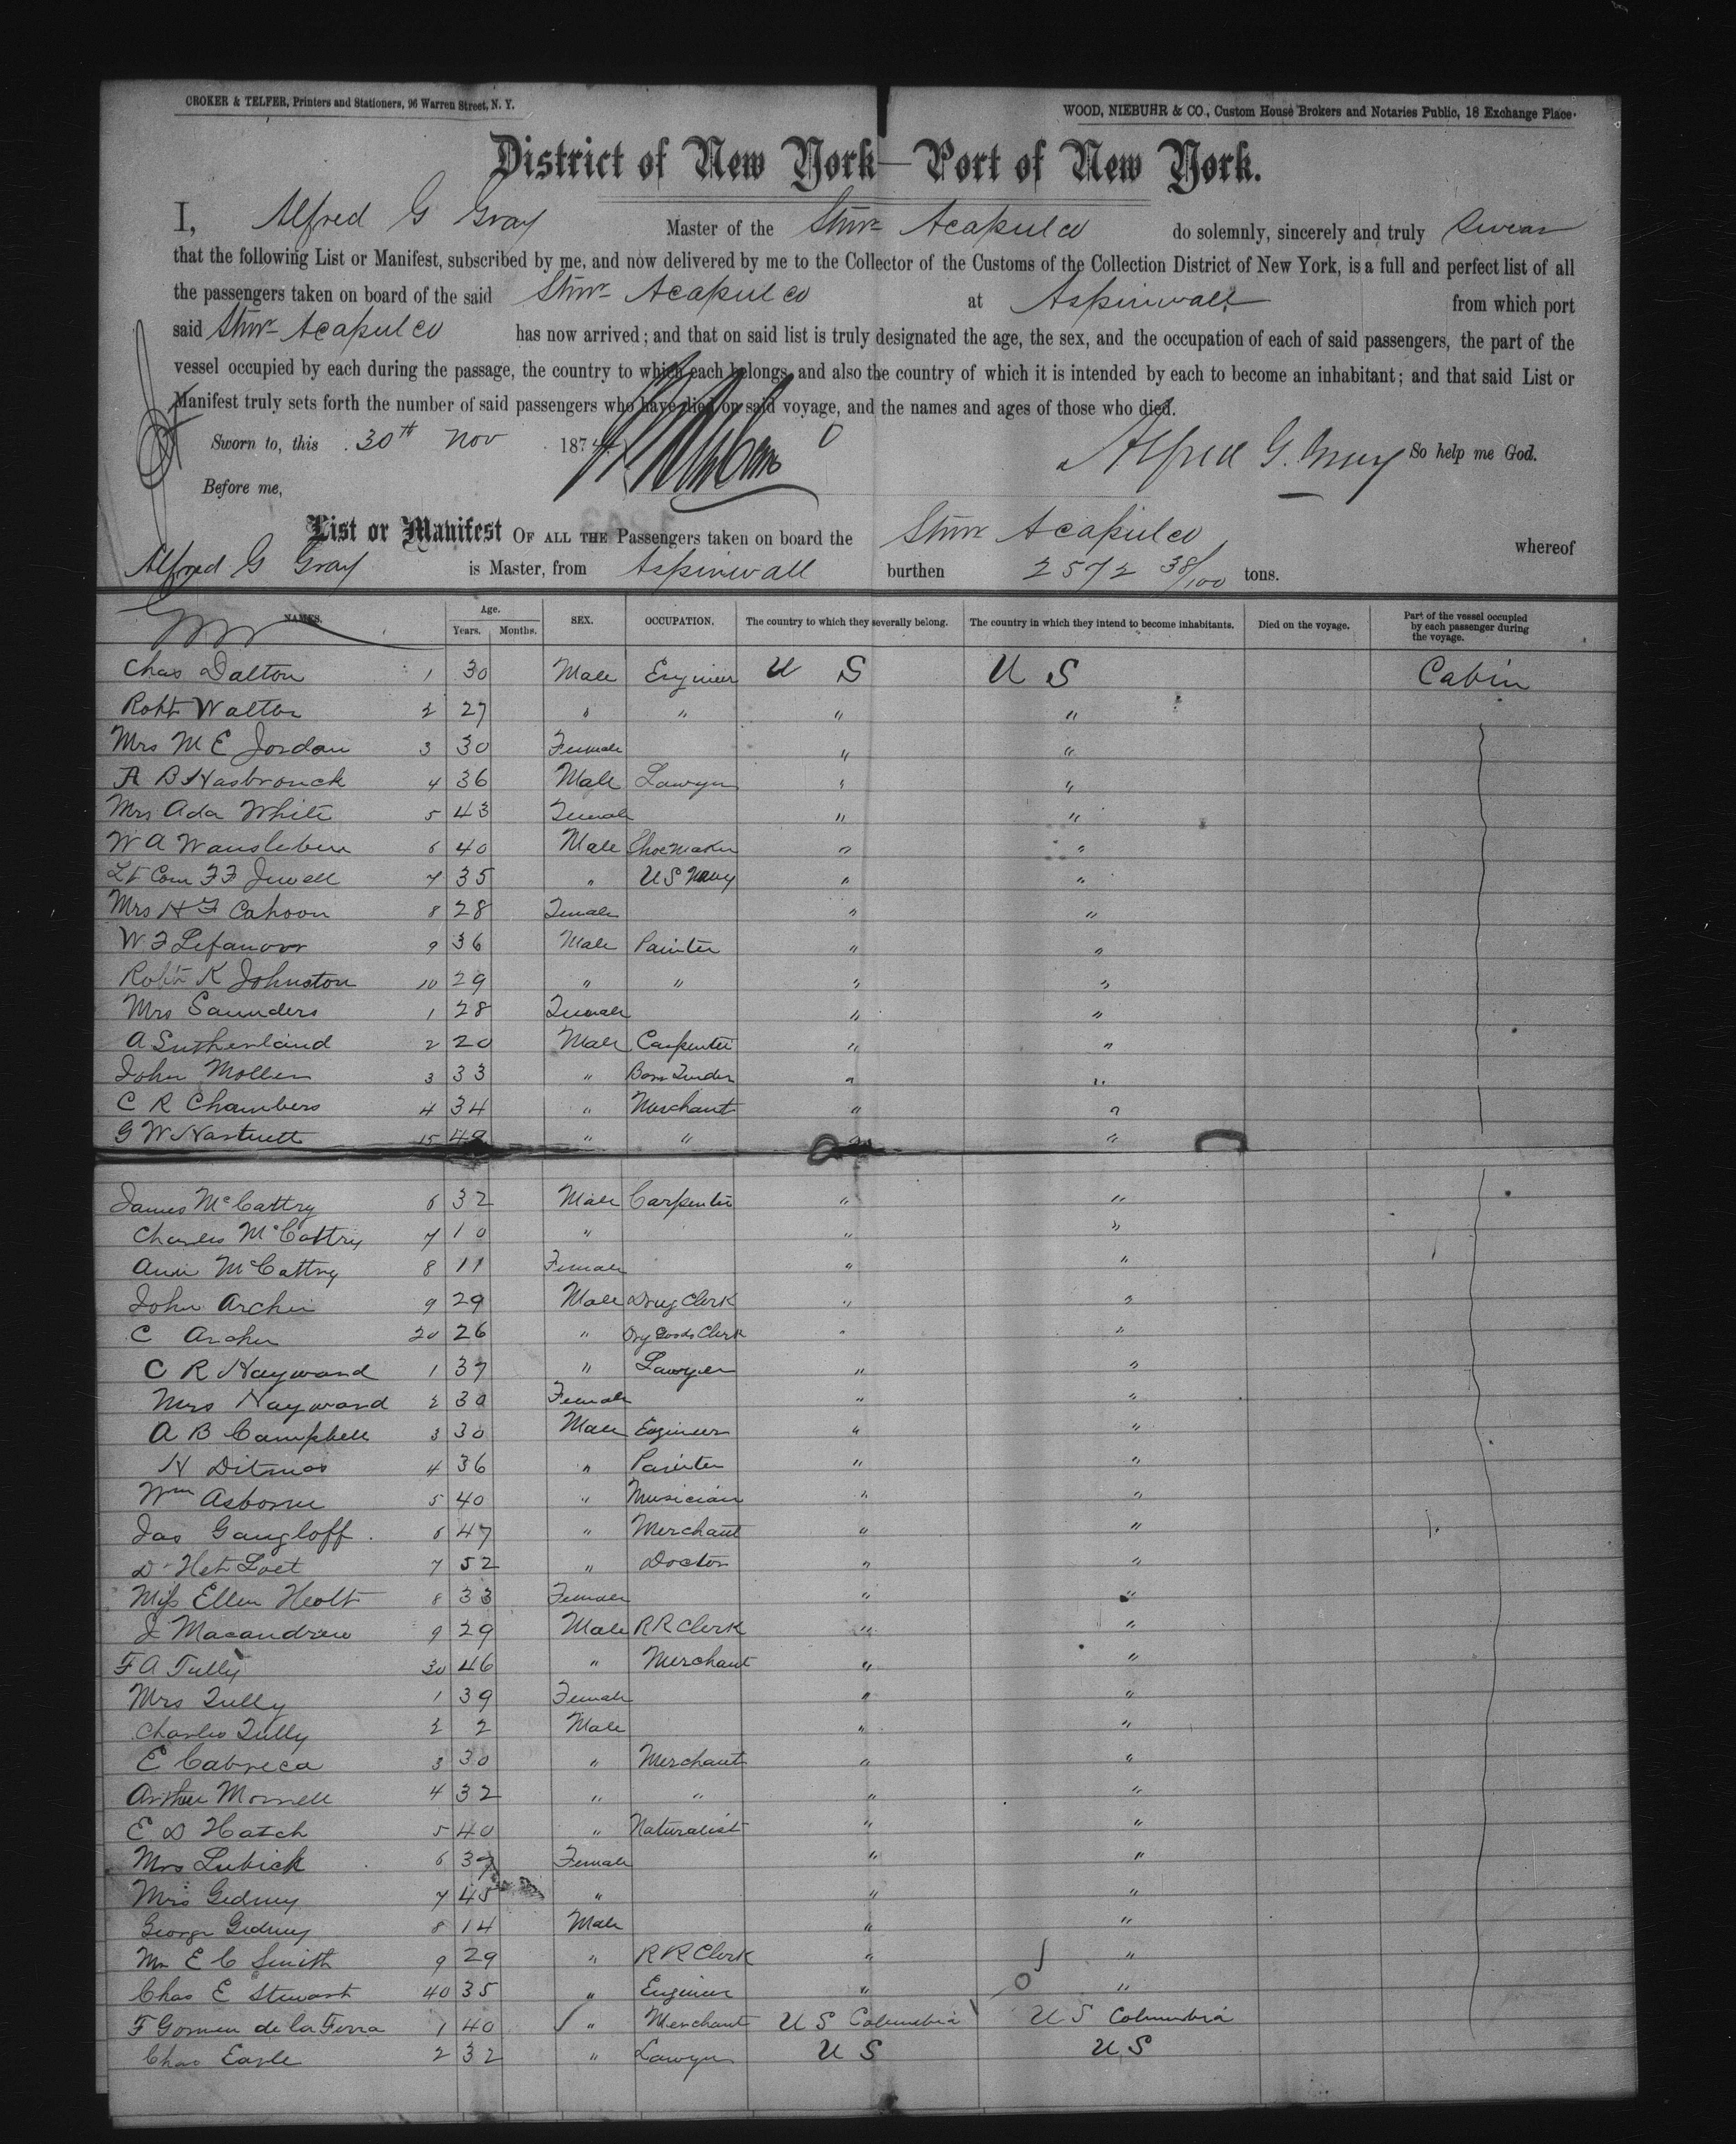 CROKER & TELFER, Printers and Stationers, 96 Warren Street, N. Y.
WOOD, NIEBUHR & CO., Custom House Brokers and Notaries Public, 18 Exchange Place.
District of New York—Port of New York.
I, Alfred G Gray Master of the Stmr Acapulco do solemnly, sincerely and truly Swear
that the following List or Manifest, subscribed by me, and now delivered by me to the Collector of the Customs of the Collection District of New York, is a full and perfect list of all
the passengers taken on board of the said Stmr Acapulco at Aspinwall from which port
said Stmr Acapulco has now arrived; and that on said list is truly designated the age, the sex, and the occupation of each of said passengers, the part of the
vessel occupied by each during the passage, the country to which each belongs, and also the country of which it is intended by each to become an inhabitant; and that said List or
Manifest truly sets forth the number of said passengers who have died on said voyage, and the names and ages of those who died.
Sworn to, this 30th Nov 1874 Alfred G. Gray So help me God.
Before me,
List or Manifest OF ALL THE Passengers taken on board the Stmr Acapulco whereof
Alfred G Gray is Master, from Aspinwall burthen 2572 38/100 tons.
NAMES. Age. Years. Months. SEX. OCCUPATION. The country to which they severally belong. The country in which they intend to become inhabitants. Died on the voyage. Part of the vessel occupied by each passenger during the voyage.
Chas Dalton 1 30 Male Engineer U S U S Cabin
Robt Walton 2 27 " " " "
Mrs M E Jordan 3 30 Female " "
A B Hasbrouck 4 36 Male Lawyer " "
Mrs Ada White 5 43 Female " "
W A 6 40 Male Shoemaker " "
Lt Com F F Jewell 7 35 " US Navy " "
Mrs H F Cahoon 8 28 Female " "
W. F 9 36 Male Painter " "
Robt K Johnston 10 29 " " " "
Mrs Saunders 1 28 Female " "
A Sutherland 2 20 Male Carpenter " "
John Moller 3 33 " Bar Tender " "
C R Chambers 4 34 " Merchant " "
G W 15 " " " "
James McCattry 6 32 Male Carpenter " "
Charles McCattry 7 10 " " "
Annie McCattry 8 11 Female " "
John Archer 9 29 Male Drug Clerk " "
C Archer 20 26 " Dry Goods Clerk " "
C R Hayward 1 37 " Lawyer " "
Mrs Hayward 2 30 Female " "
A B Campbell 3 30 Male Engineer " "
H Ditmas 4 36 " Painter " "
Wm Asborne 5 40 " Musician " "
Jas Gangloff 6 47 " Merchant " "
7 52 " Doctor " "
Miss Ellen Heolt 8 33 Female " "
J Macandrew 9 29 Male RR Clerk " "
F A Tully 30 46 " Merchant " "
Mrs Tully 1 39 Female " "
Charles Tully 2 2 Male " "
E Cabreca 3 30 " Merchant " "
Arthur Morrell 4 32 " " " "
E D Hatch 5 40 " Naturalist " "
Mrs Lubick 6 37 Female " "
Mrs Gedney 7 45 " " "
George Gedney 8 14 Male " "
Mr E C Smith 9 29 " R R Clerk " "
Chas E Stewart 40 35 " Engineer " "
F Gomen de la Terra 1 40 " Merchant U S Columbia U S Columbia
Chas Earle 2 32 " Lawyer U S U S